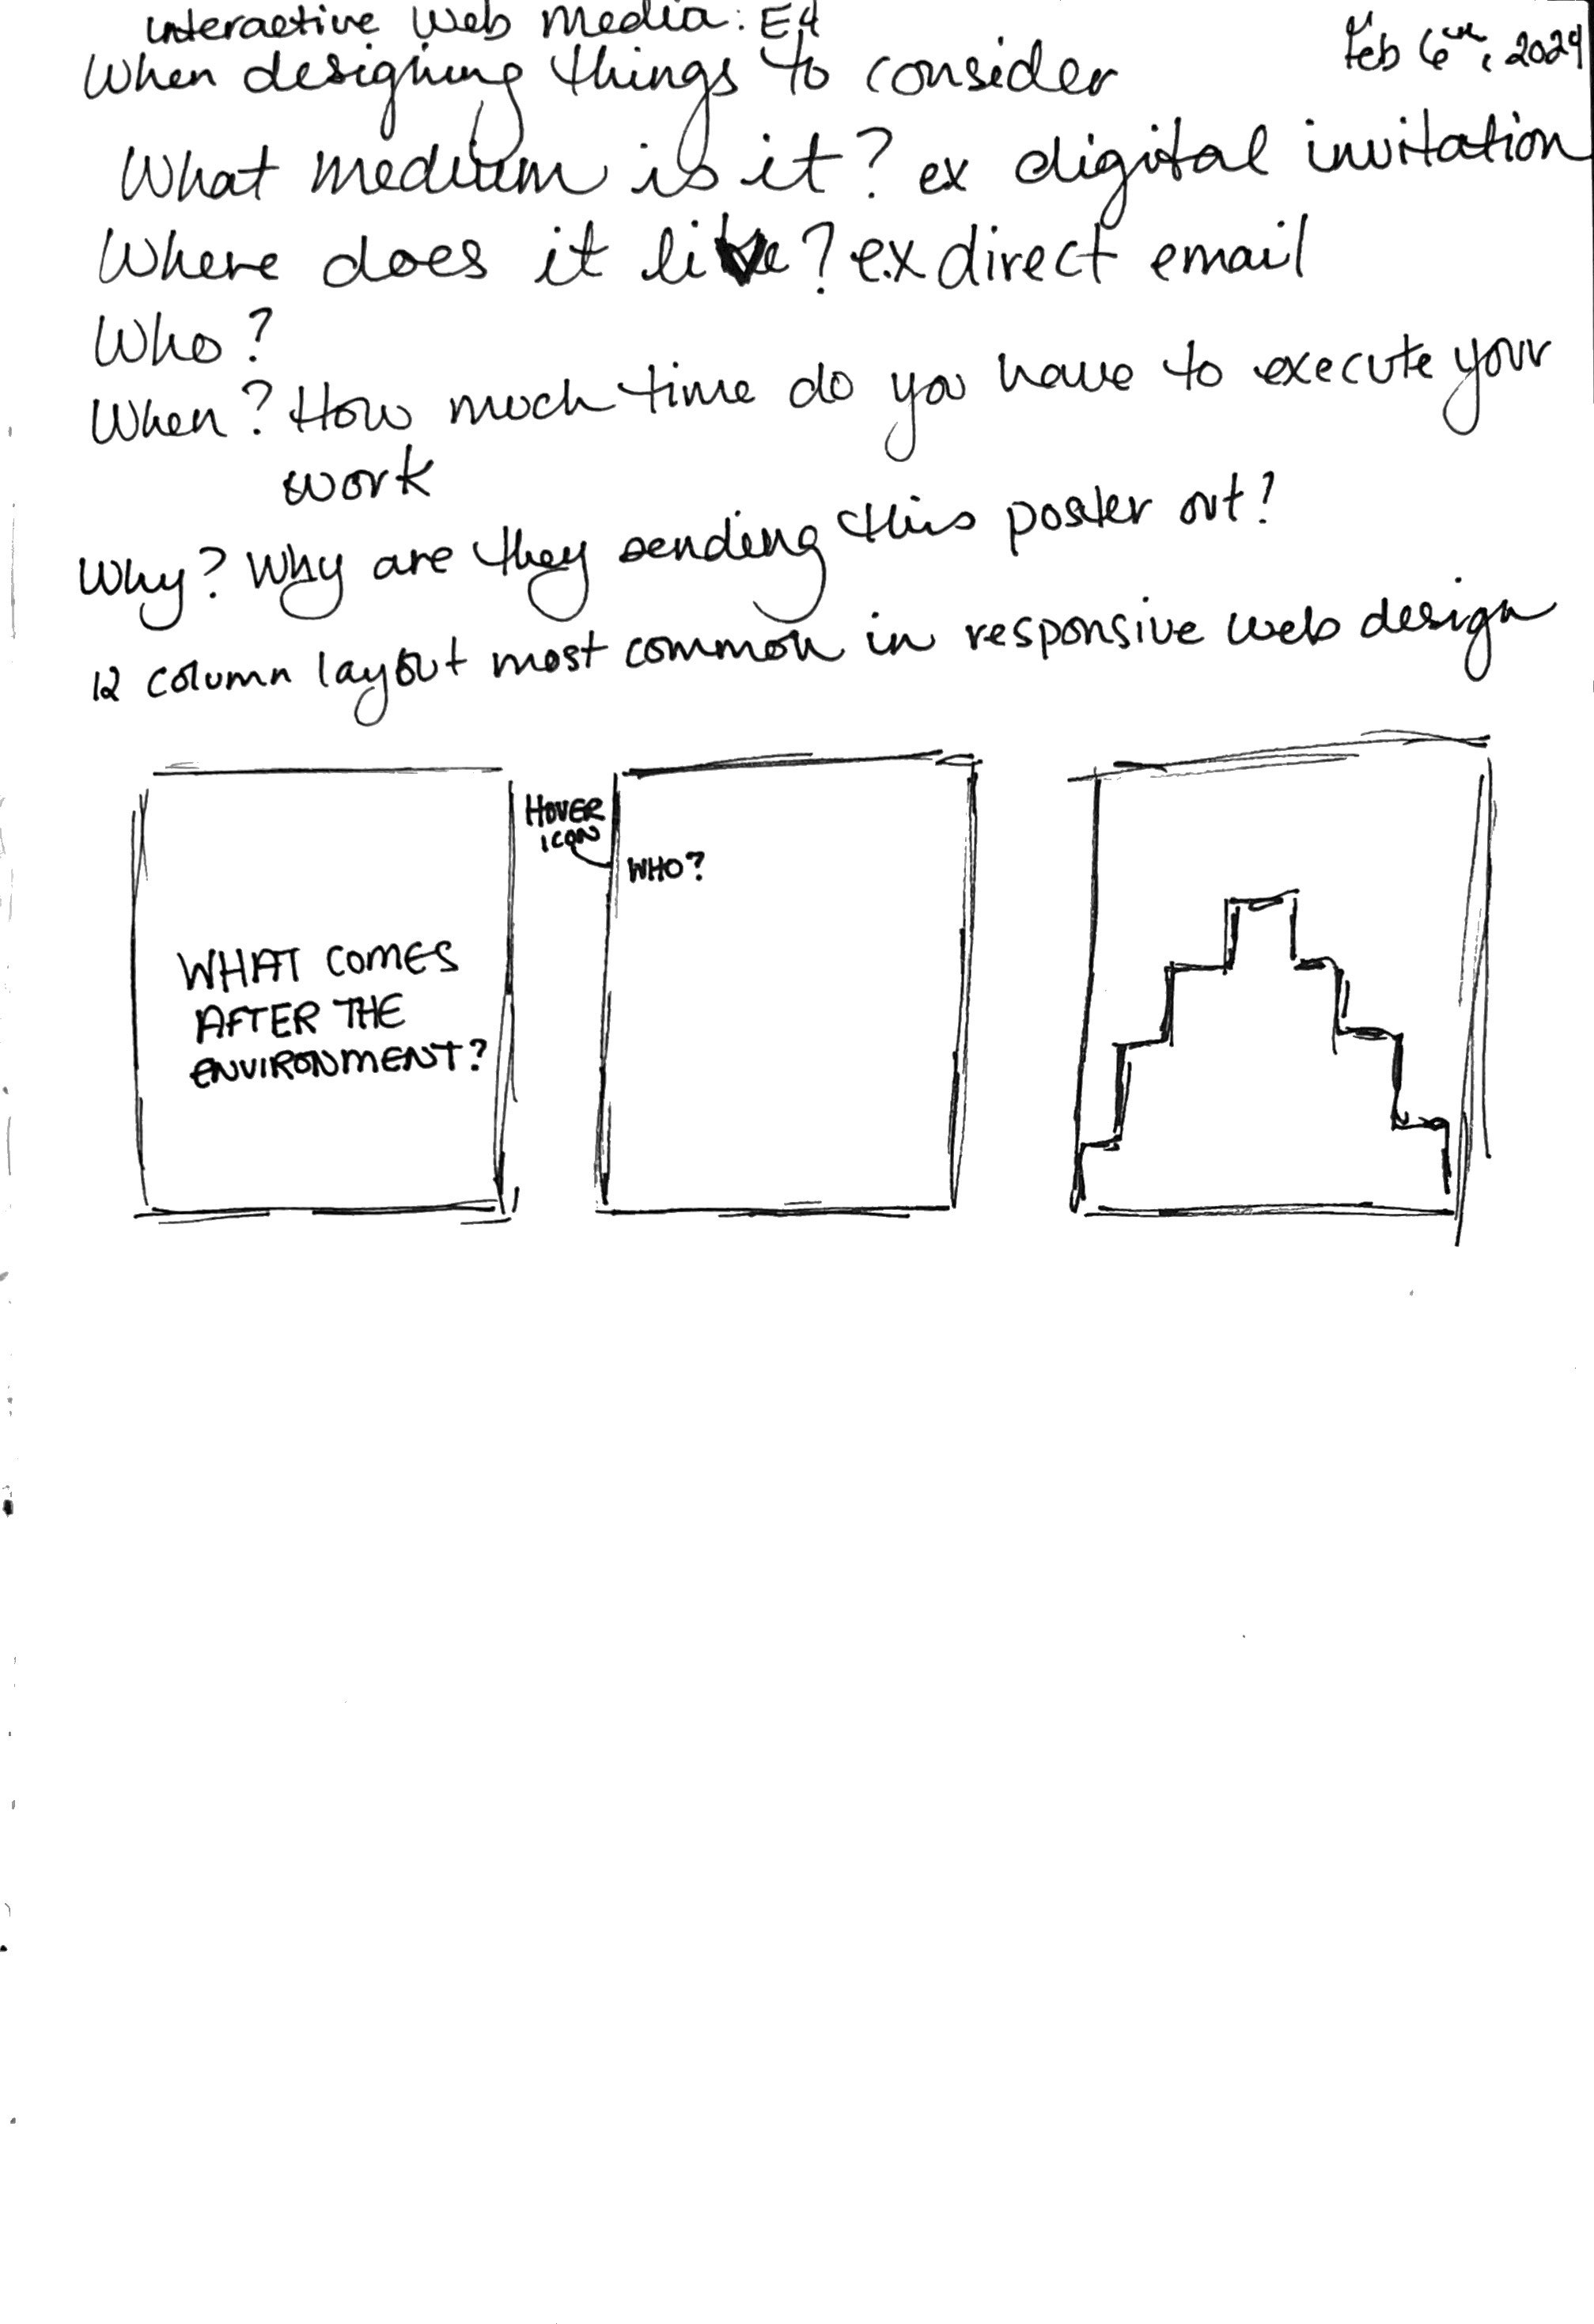 interactive Web Media: E4
Feb 6th, 2024
When designing things to consider
What medium is it? ex digital invitation
Where does it live? ex direct email
Who?
When? How much time do you have to execute your
work
Why? Why are they sending this poster out?
12 column layout most common in responsive web design
HOVER
ICON
WHO?
WHAT COMES
AFTER THE
ENVIRONMENT?